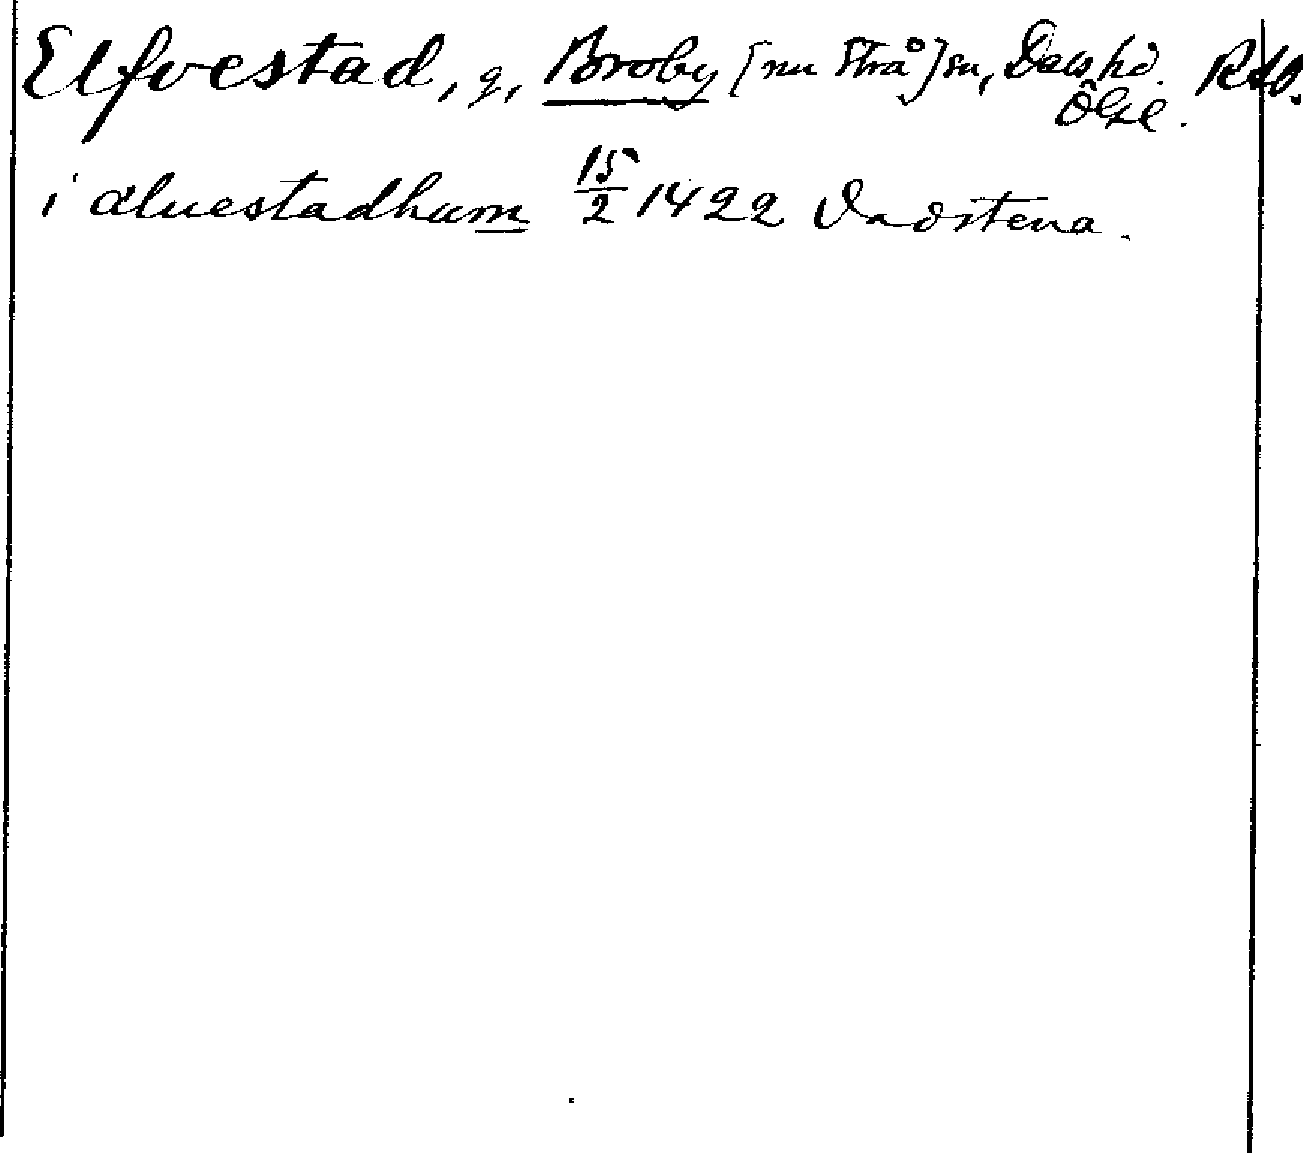 Elfvestad, g, Broby [nu Strå] sn, Dals hd. RAO.
Ögtl.
i æluestadhum 15/2 1422 Vadstena.